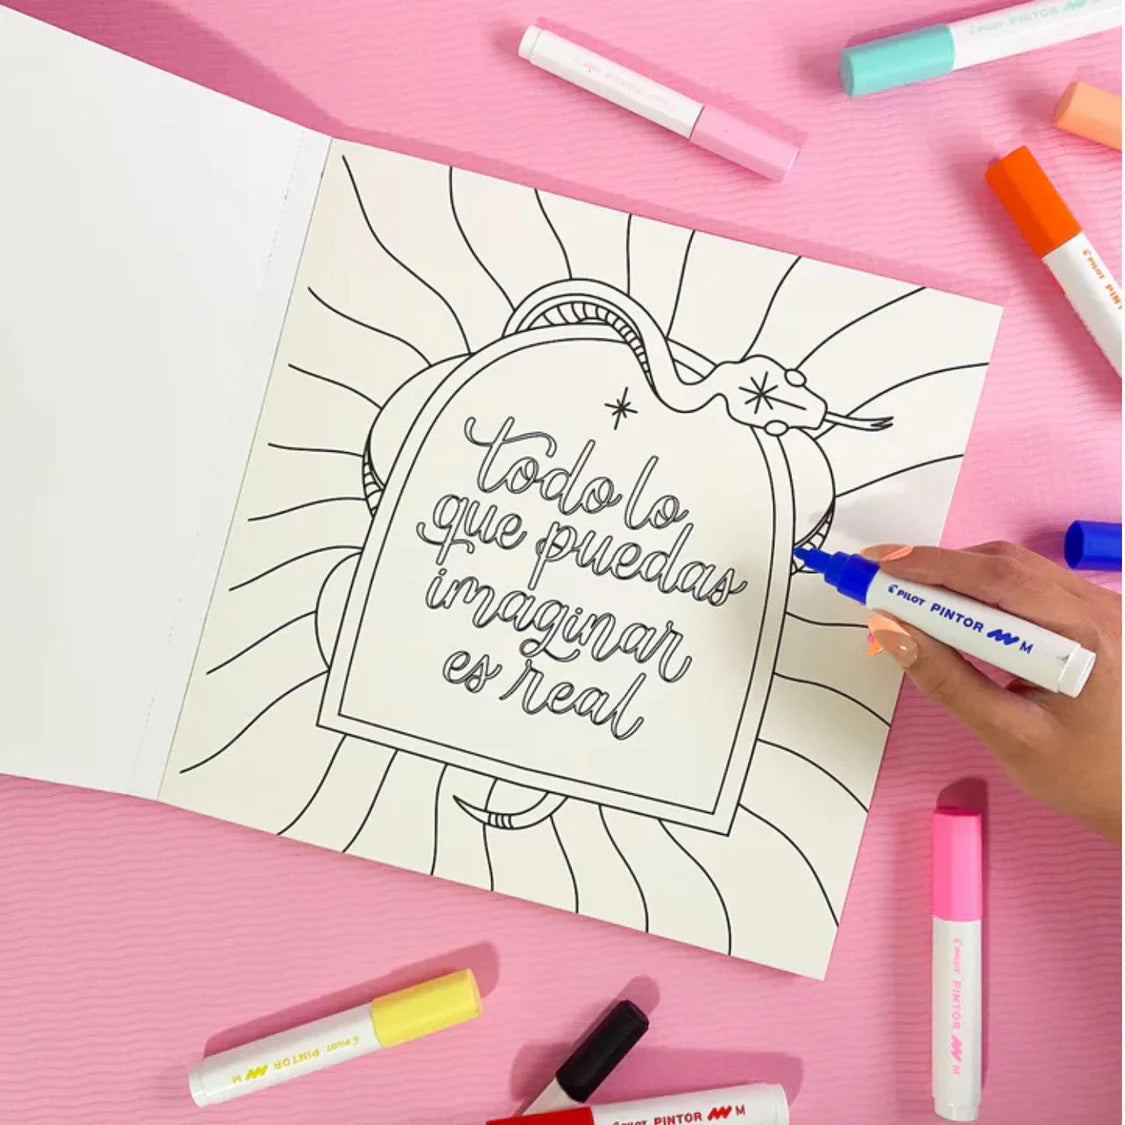 PILOT PINTOR M
PILOT PIN
todo lo
que puedas
imaginar
es real
PILOT PINTOR M
PILOT PINTOR M
PILOT PINTOR M
PILOT PINTOR M